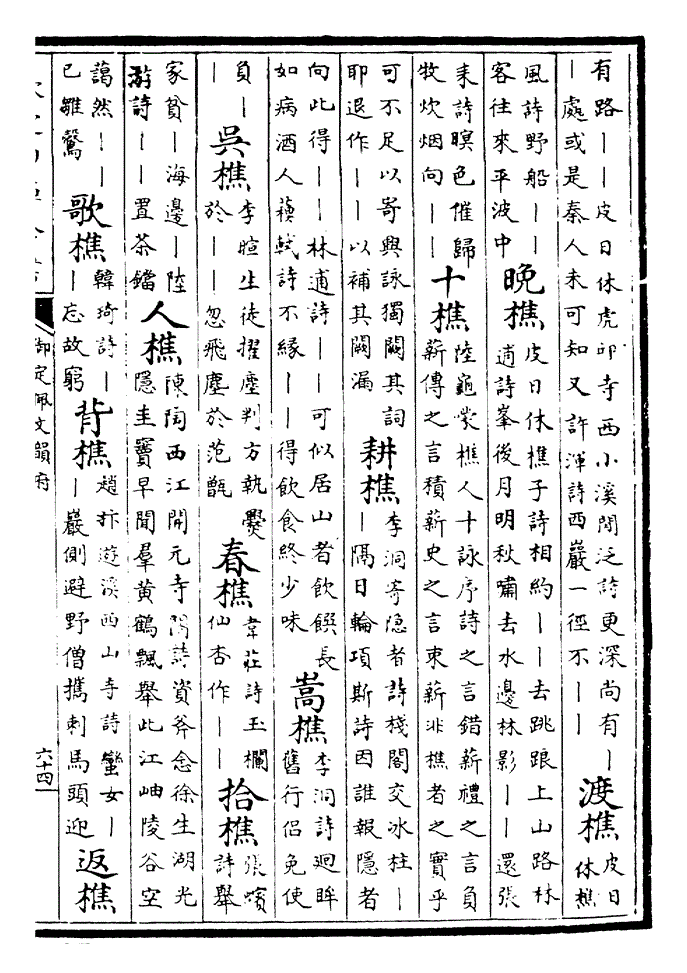 有路｜｜皮日休虎邱寺西小溪閒泛詩更深尚有｜
｜處或是秦人未可知又許渾詩西巖一徑不｜｜
渡樵
皮日
休樵
風詩野船｜｜
客往來平波中
晚樵
皮日休樵子詩相約｜｜去跳踉上山路林
逋詩峯後月明秋嘯去水邊林影｜｜還張
耒詩瞑色催歸
牧炊烟向｜｜
十樵
陸龜蒙樵人十詠序詩之言錯薪禮之言負
薪傳之言積薪史之言束薪非樵者之實乎
可不足以寄興詠獨闕其詞
耶退作｜｜以補其闕漏
耕樵
李洞寄隱者詩棧閣交冰柱｜
｜隔日輪項斯詩因誰報隱者
向此得｜｜林逋詩｜｜可似居山者飲饌長
如病酒人蘇軾詩不緣｜｜得飲食終少味
嵩樵
李洞詩廻眸
舊行侶免使
負｜
｜
吳樵
李暄生徒擢塵判方執爨
於｜｜忽飛塵於范甑
春樵
韋莊詩玉欄
仙杏作｜｜
拾樵
張蠙
詩舉
家貧｜海邊｜陸
游詩｜｜置茶鐺
人樵
陳陶西江開元寺閣詩資斧念徐生湖光
隱圭竇早聞羣黃鶴飄舉此江岫陵谷空
藹然｜｜
已雛鶩
歌樵
韓琦詩｜
｜忘故窮
背樵
趙抃遊溪西山寺詩蠻女｜
｜巖側避野僧攜刺馬頭迎
返樵
御定佩文韻府
六十四